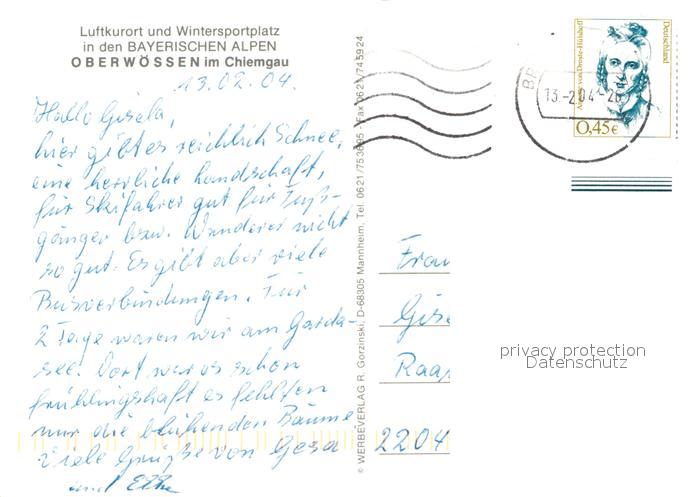 Luftkurort und Wintersportplatz
in den BAYERISCHEN ALPEN
OBERWÖSSEN im Chiemgau
13.02.04.
Hallo Gisela,
hier gibt es reichlich Schnee,
eine herrliche Landschaft,
für Skifahrer gut für Fuß-
gänger bzw. Wanderer nicht
so gut. Es gibt aber viele
Busverbindungen. Für
2 Tage waren wir am Garda-
see. Dort war es schon
frühlingshaft es fehlten
nur die blühenden Bäume
Viele Grüße von Gesa
und
© WERBEVERLAG R. Gorzinski, D-68305 Mannheim, Tel. 0621/753695 - Fax 0621/745924
13.-2.04-
Annette von Droste-Hülshoff
Deutschland
0,45€
Frau
Gise
Raa
2204
privacy protection
Datenschutz